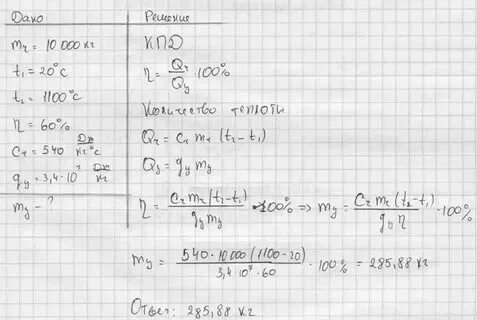 Дано
mч = 10 000 кг
t₁ = 20°С
t₂ = 1100°С
η = 60%
Сч = 540 Дж/кг°С
qу = 3,4·10⁷ Дж/кг
mу – ?
Решение
КПД
η = Qч/Qу · 100%
Количество теплоты
Qч = Сч mч (t₂ – t₁)
Qу = qу mу
η = Сч mч (t₂ – t₁)/qу mу · 100% ⇒ mу = Сч mч (t₂ – t₁)/qу η · 100%
mу = 540 · 10 000 (1100 – 20)/3,4 · 10⁷ · 60 · 100% = 285,88 кг
Ответ: 285,88 кг